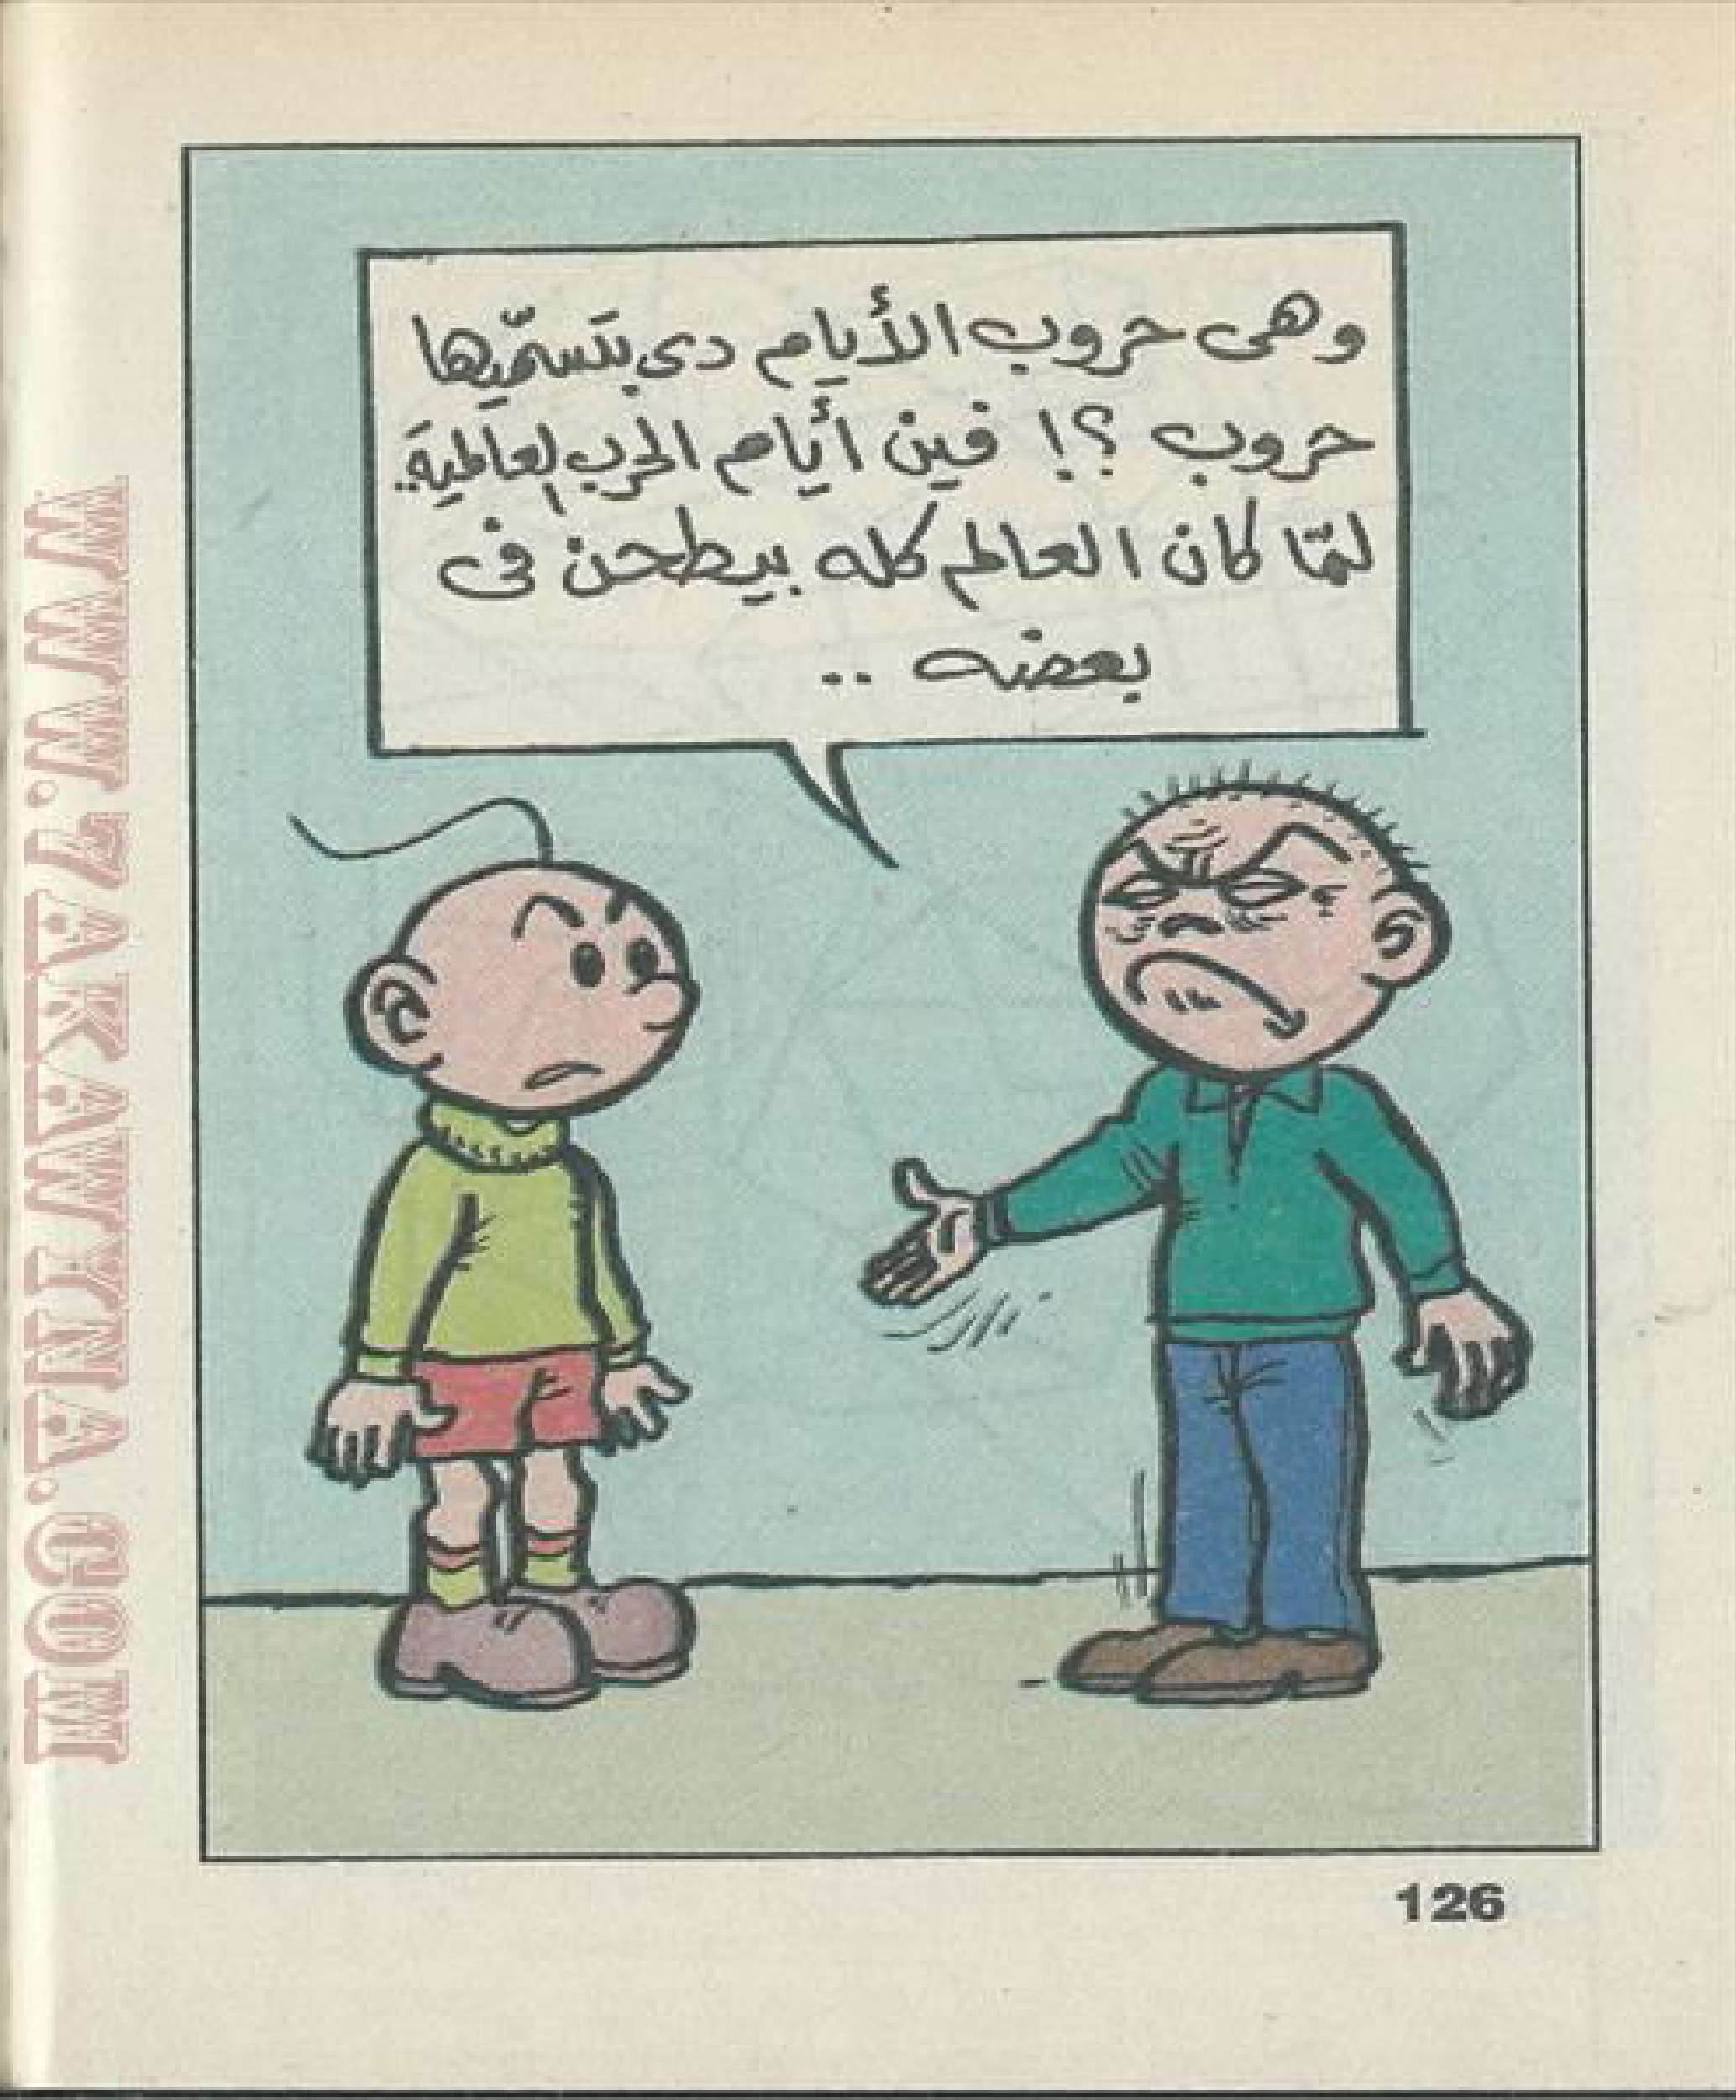 وهى حروب الأيام دى بتسمّيها
حروب ؟! فين أيام الحرب العالمية..
لمّا كان العالم كله بيطحن فى
بعضه ..
126
WWW.ZAKAWINA.COM